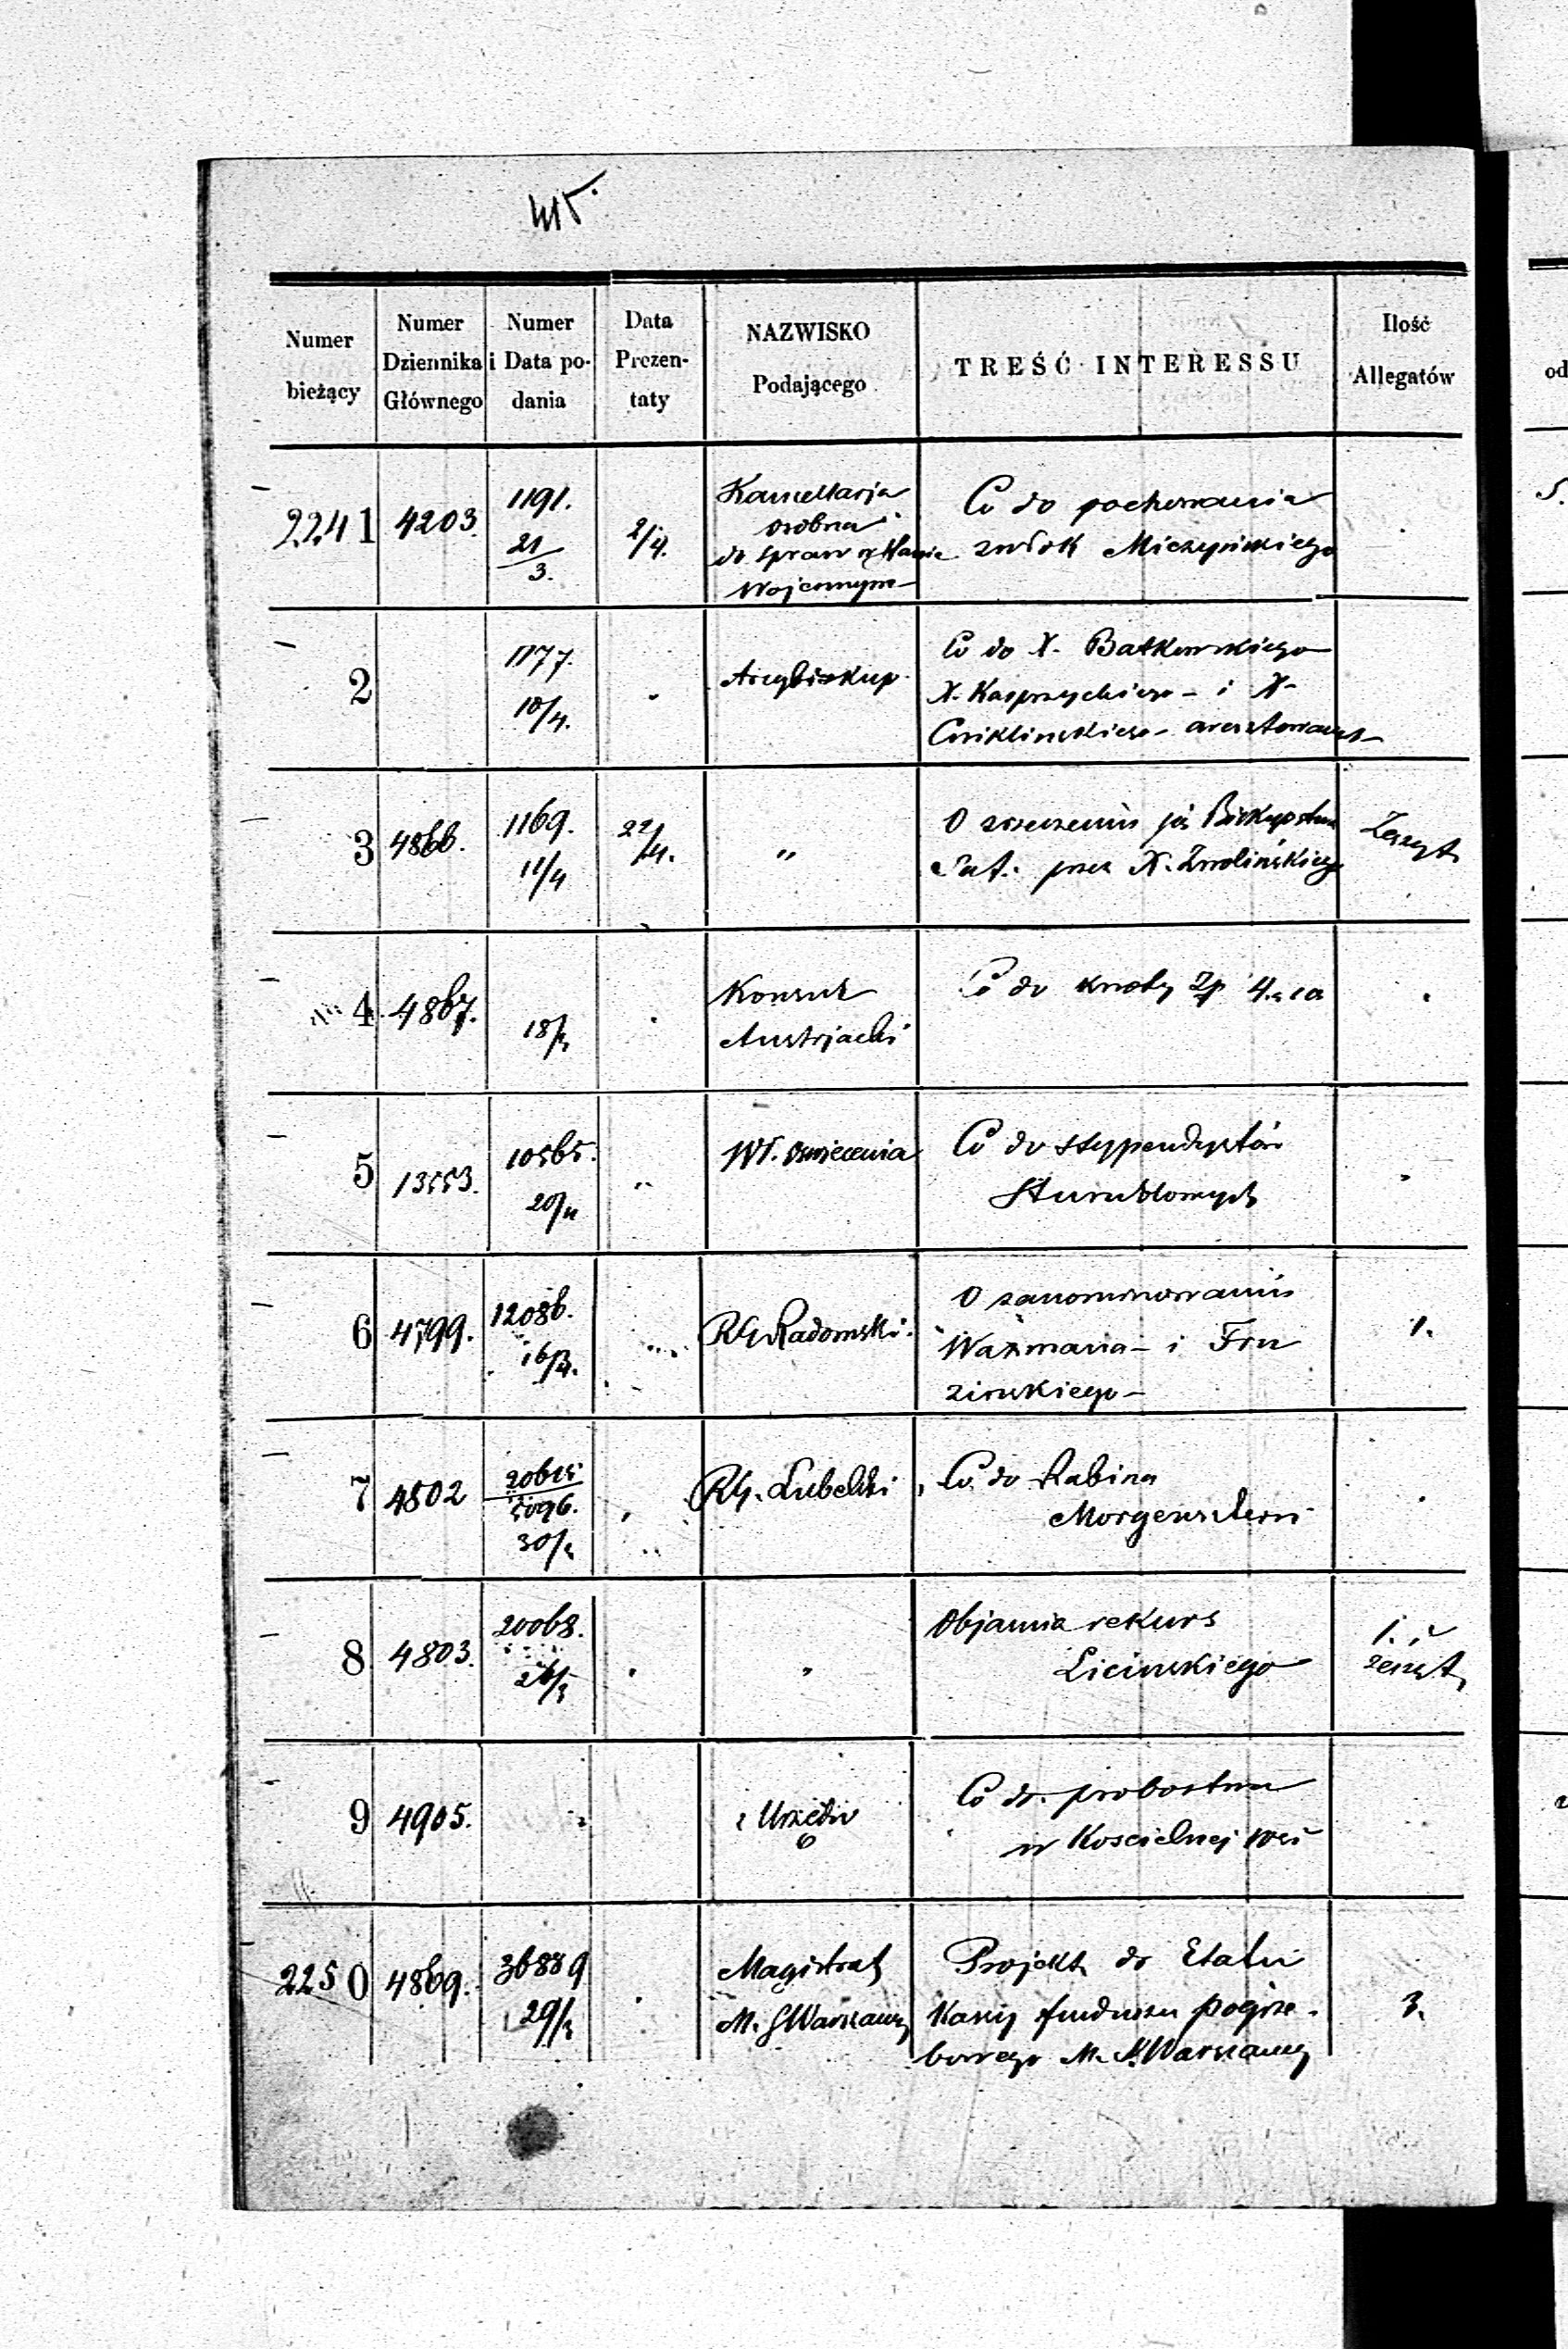 Numer bieżący
Numer Dziennika Głównego
Numer i Data podania
Data Prezentaty
NAZWISKO Podającego
TREŚĆ INTERESSU
Ilość Allegatów
2241 4203. 1191. 21/3. 2/4. Kancellarja osobna do spraw o Stanie Wojennym Co do pochowania zwłok Miczyńskiego
2 1177. 10/4. Arcybiskup Co do X. Batkowskiego X. Kasprzyckiego i X. Cwiklinskiego aresztowanych
3 4866. 1169. 11/4 22/4. " O zrzeczeniu Biskupstwa przez X. Zwolińskiego Zeszyt
4 4867. Konsul Austrjacki Co do kwoty Zp 4
5 13553. 10565. Wł. Oswiecenia Co do stypendystów
6 4799. 12086. 16/4. RG Radomski O zanominowaniu Waxmana i Fru zinskiego 1.
7 4802 20615 5096. 30/3 RG. Lubelski Co do Rabina Morgensztern
8 4803. 20068. 26/3 " Objawia rekurs Licinskiego 1. i zeszyt
9 4905. Urzędu Co do probostwa w Koscielnej wsi
2250 4869. 36889 29/3 Magistrat M. S Warszawy Projekt do Etatu Kassy funduszu pogrze-
bowego M. S. Warszawy 3.